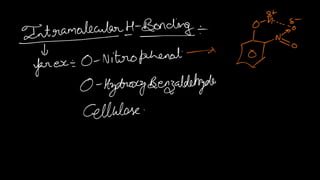 Intramolecular H-Bonding :-
O-Nitrophenol
O-Hydroxy Benzaldehyde
Cellulose.
O H δ+ δ-
N O
O